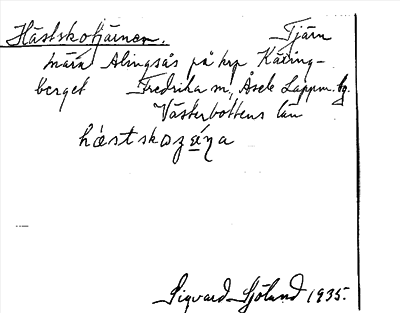 Hästskotjärnen. Tjärn
nära Alingsås på krp Käring-
berget Fredrika sn, Åsele Lappm. tg.
Västerbottens län
Sigvard Sjöland 1935.